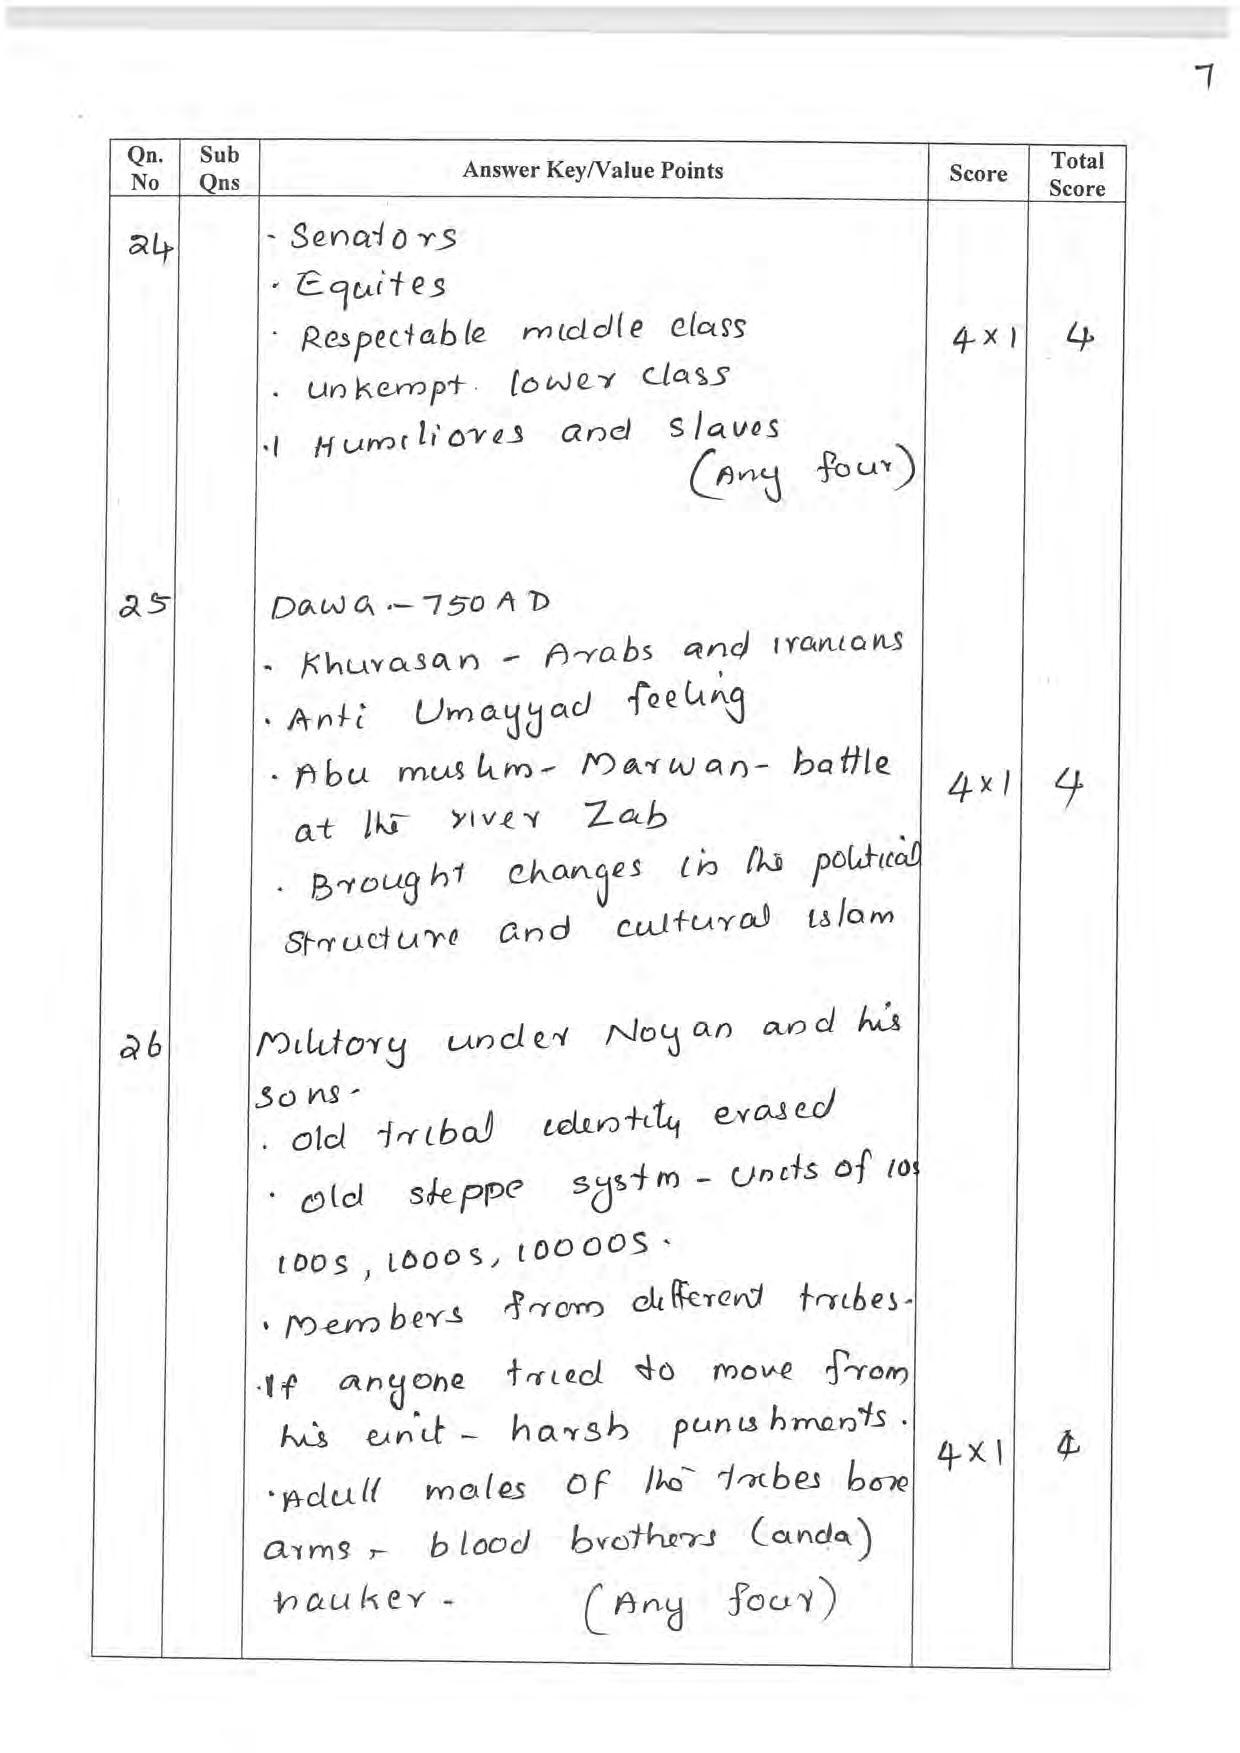 7
Qn. No
Sub Qns
Answer Key/Value Points
Score
Total Score
24
- Senators
· Equites
· Respectable middle class
4 × 1
4
· unkempt. lower class
· Humiliores and slaves
(Any four)
25
Dawa - 750 AD
- Khurasan - Arabs and iranians
· Anti Umayyad feeling
· Abu muslim - Marwan - battle
at the river Zab
4 × 1
4
· Brought changes in the political
structure and cultural islam
26
Military under Noyan and his
sons -
· old tribal identity erased
· old steppe systm - units of 10s
100s, 1000s, 10000s.
· Members from different tribes.
· If anyone tried to move from
his unit - harsh punishments.
4 × 1
4
· Adult males of the tribes bore
arms - blood brothers (anda)
nauker - (Any four)